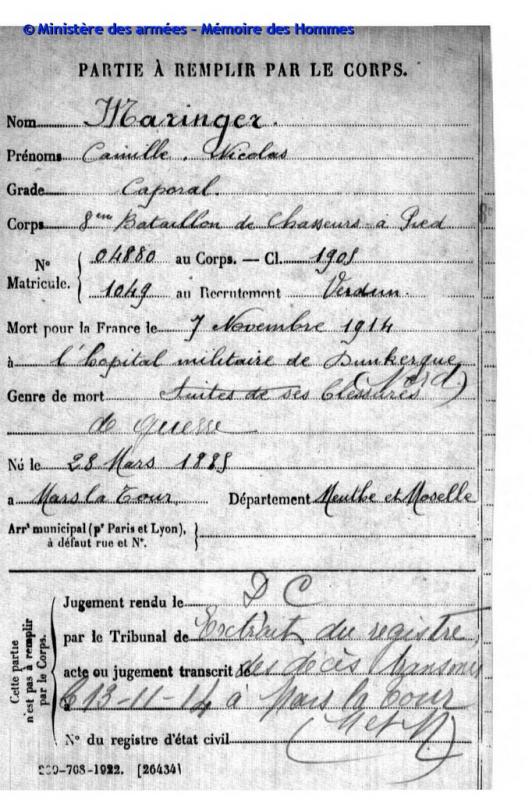 © Ministère des armées - Mémoire des Hommes
PARTIE À REMPLIR PAR LE CORPS.
Nom Maringer.
Prénoms Camille, Nicolas
Grade Caporal.
Corps 8eme Bataillon de Chasseurs à Pied
N° Matricule. { 04880 au Corps. — Cl. 1905
1049 au Recrutement Verdun.
Mort pour la France le 7 Novembre 1914
à l'hopital militaire de Dunkerque
(Nord)
Genre de mort Suites de ses blessures
de guerre
Né le 28 Mars 1885
a Mars la Tour, Département Meurthe et Moselle
Arrt municipal (pr Paris et Lyon), à défaut rue et N°. }
Cette partie n'est pas à remplir par le Corps.
Jugement rendu le D C
par le Tribunal de Extrait du registre
acte ou jugement transcrit le des décès transmis
le 13-11-14 à Mars la Tour
(M et M)
N° du registre d'état civil
-708-1922. [26434]